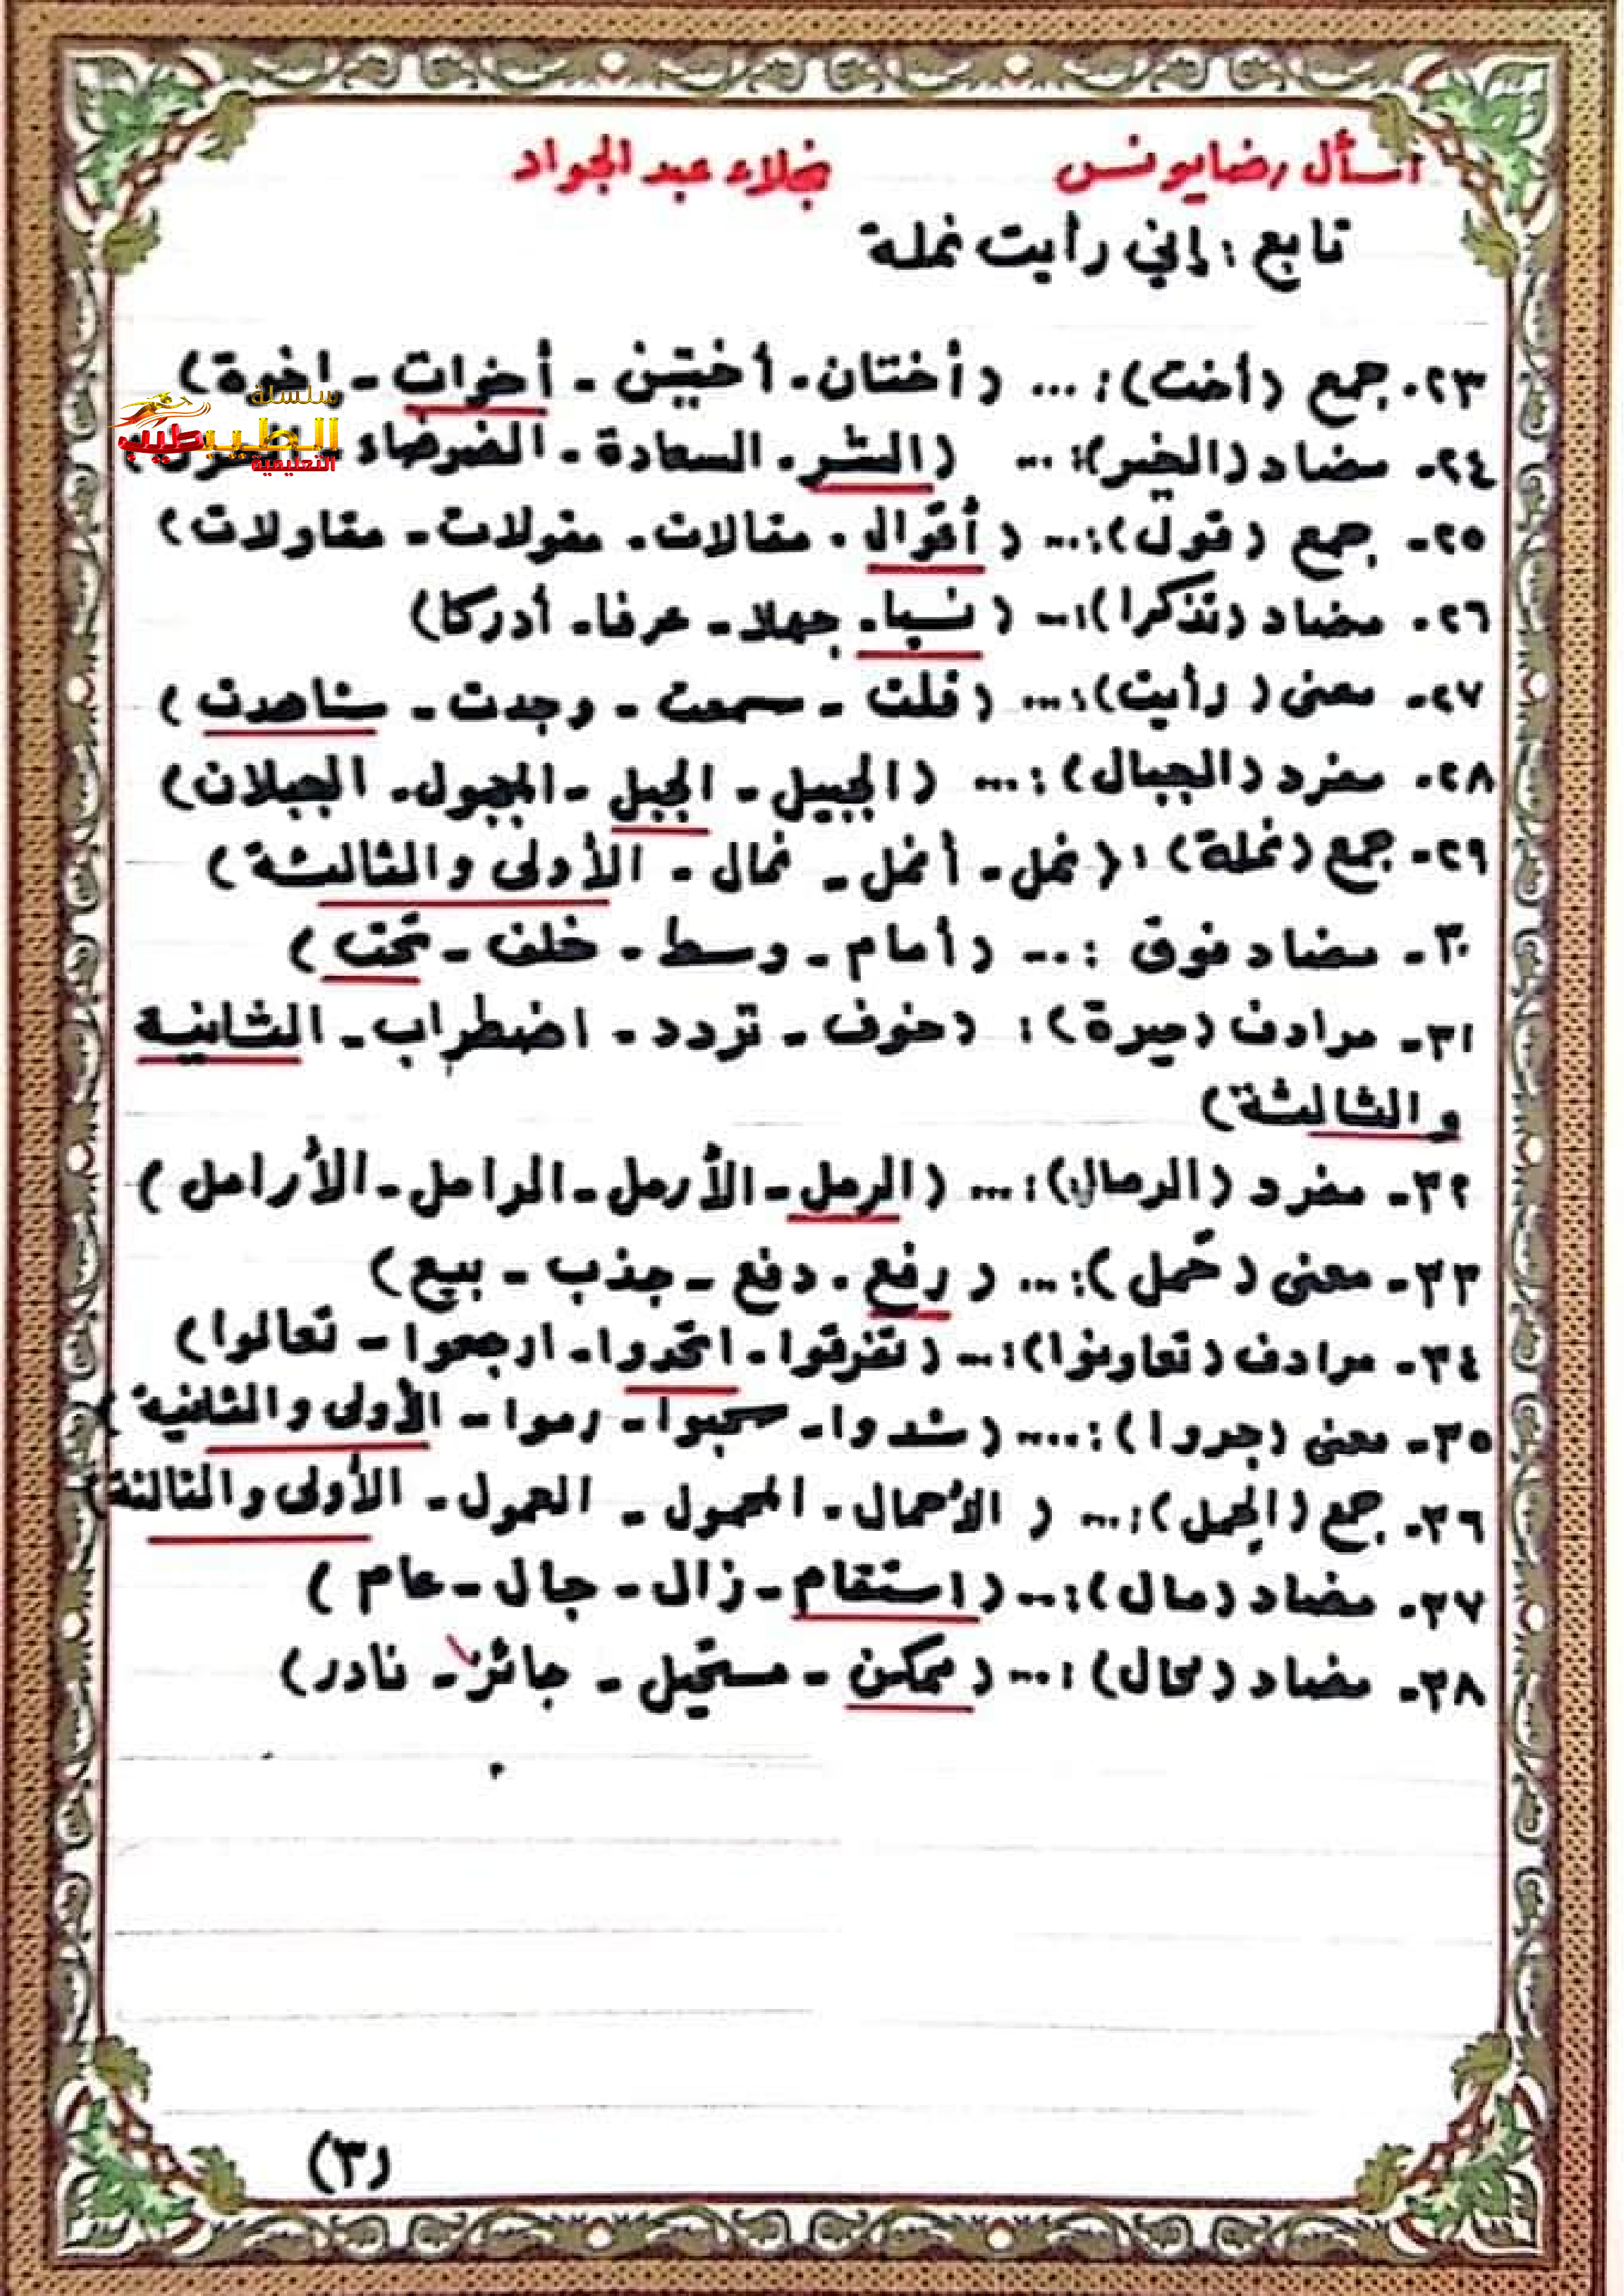 اسأل رضا يونس نجلاء عبد الجواد
تابع : إني رأيت نملة
٢٣- جمع (أخت): ... (أختان - أختين - أخوات - اخوة)
سلسلة الطيب طيب التعليمية
٢٤- مضاد (الخير): ... (الشر - السعادة - الضوضاء -
٢٥- جمع (قول): ... (أقوال - مقالات - مقولات - مقاولات)
٢٦- مضاد (تذكرا): ... (نسيا - جهلا - عرفا - أدركا)
٢٧- معنى (رأيت): ... (قلت - سمعت - وجدت - شاهدت)
٢٨- مفرد (الجبال): ... (الجبيل - الجبل - المجبول - الجبلان)
٢٩- جمع (نملة) : (نمل - أنمل - نمال - الأولى والثالثة)
٣٠- مضاد فوق : ... (أمام - وسط - خلف - تحت)
٣١- مرادف (حيرة) : (خوف - تردد - اضطراب - الثانية
والثالثة)
٣٢- مفرد (الرمال): ... (الرمل - الأرمل - الرامل - الأرامل)
٣٣- معنى (حَمل): ... (رفع - دفع - جذب - بيع)
٣٤- مرادف (تعاونوا): ... (تفرقوا - اتحدوا - ارجعوا - تعالوا)
٣٥- معنى (جروا): ... (شدوا - سحبوا - رموا - الأولى والثانية)
٣٦- جمع (الحِمل): ... (الأحمال - المحمول - الحمول - الأولى والثالثة)
٣٧- مضاد (مال): ... (استقام - زال - جال - عام)
٣٨- مضاد (محال): ... (ممكن - مستحيل - جائز - نادر)
(٣)